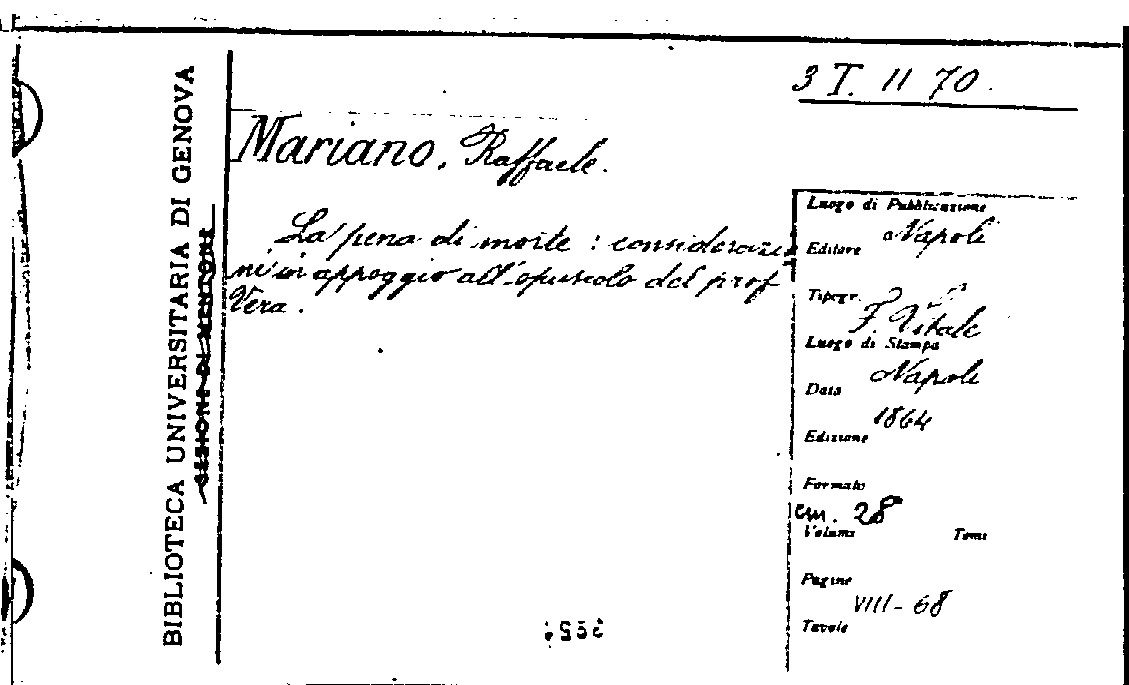 3 T. II 70.
BIBLIOTECA UNIVERSITARIA DI GENOVA
SEZIONE DI MENTONE
Mariano, Raffaele.
La pena di morte : considerazio
ni in appoggio all'opuscolo del prof
Vera.
Luogo di Pubblicazione
Napoli
Editore
Tipogr.
F. Vitale
Luogo di Stampa
Napoli
Data
1864
Edizione
Formato
cm. 28
Volumi Tomi
Pagine
VIII-68
Tavole